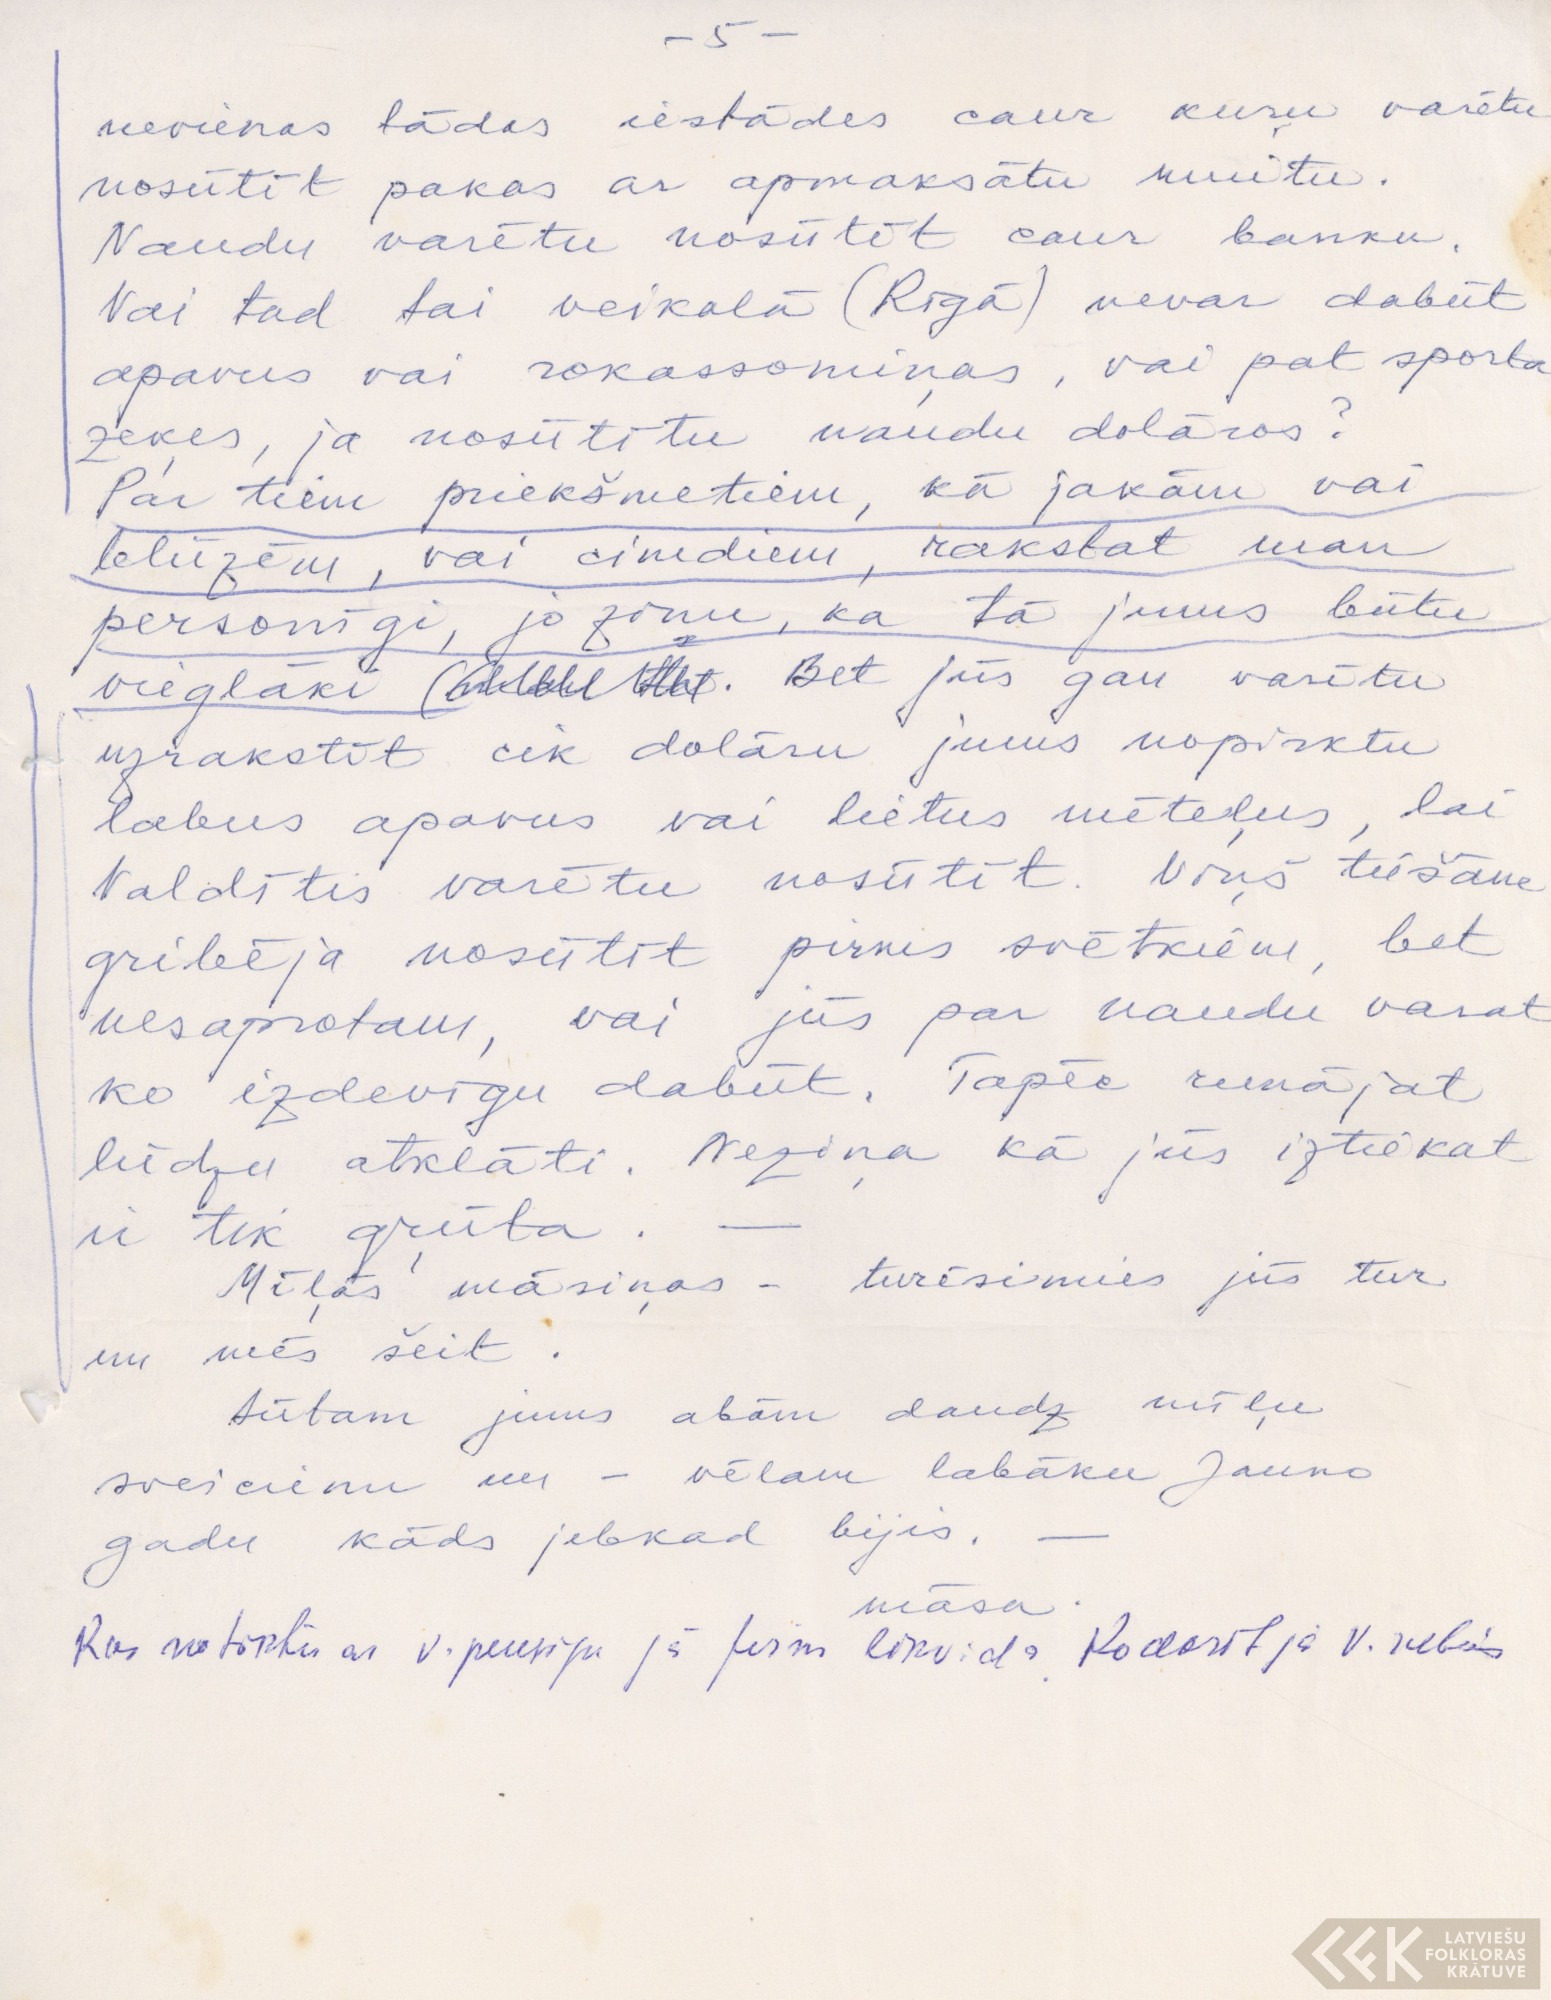 - 5 -
nevienas tādas iestādes caur kuŗu varētu
nosūtīt pakas ar apmaksātu muitu.
Naudu varētu nosūtīt caur banku.
Vai tad tai veikalā (Rīgā) nevar dabūt
apavus vai rokassomiņas, vai pat sporta
zeķes, ja nosūtītu naudu dolāros?
Par tiem priekšmetiem, kā jakām vai
blūzēm, vai cimdiem, rakstat man
personīgi, jo zinu, ka tā jums būtu
vieglāki. Bet jūs gan varētu
uzrakstīt cik dolāru jums nopirktu
labus apavus vai lietus mēteļus, lai
Valdītis varētu nosūtīt. Viņš tiešām
gribēja nosūtīt pirms svētkiem, bet
nesaprotam, vai jūs par naudu varat
ko izdevīgu dabūt. Tapēc runājat
lūdzu atklāti. Neziņa kā jūs iztiekat
ir tik grūta. —
Mīļās māsiņas - turēsimies jūs tur
un mēs šeit.
Sūtam jums abām daudz mīļu
sveicienu un - vēlam labāku Jauno
gadu kāds jebkad bijis. —
māsa.
Kas notiktu ar V. pensiju jā firm likvidē. Ko darīt jā V. nebūs
LATVIEŠU
FOLKLORAS
KRĀTUVE